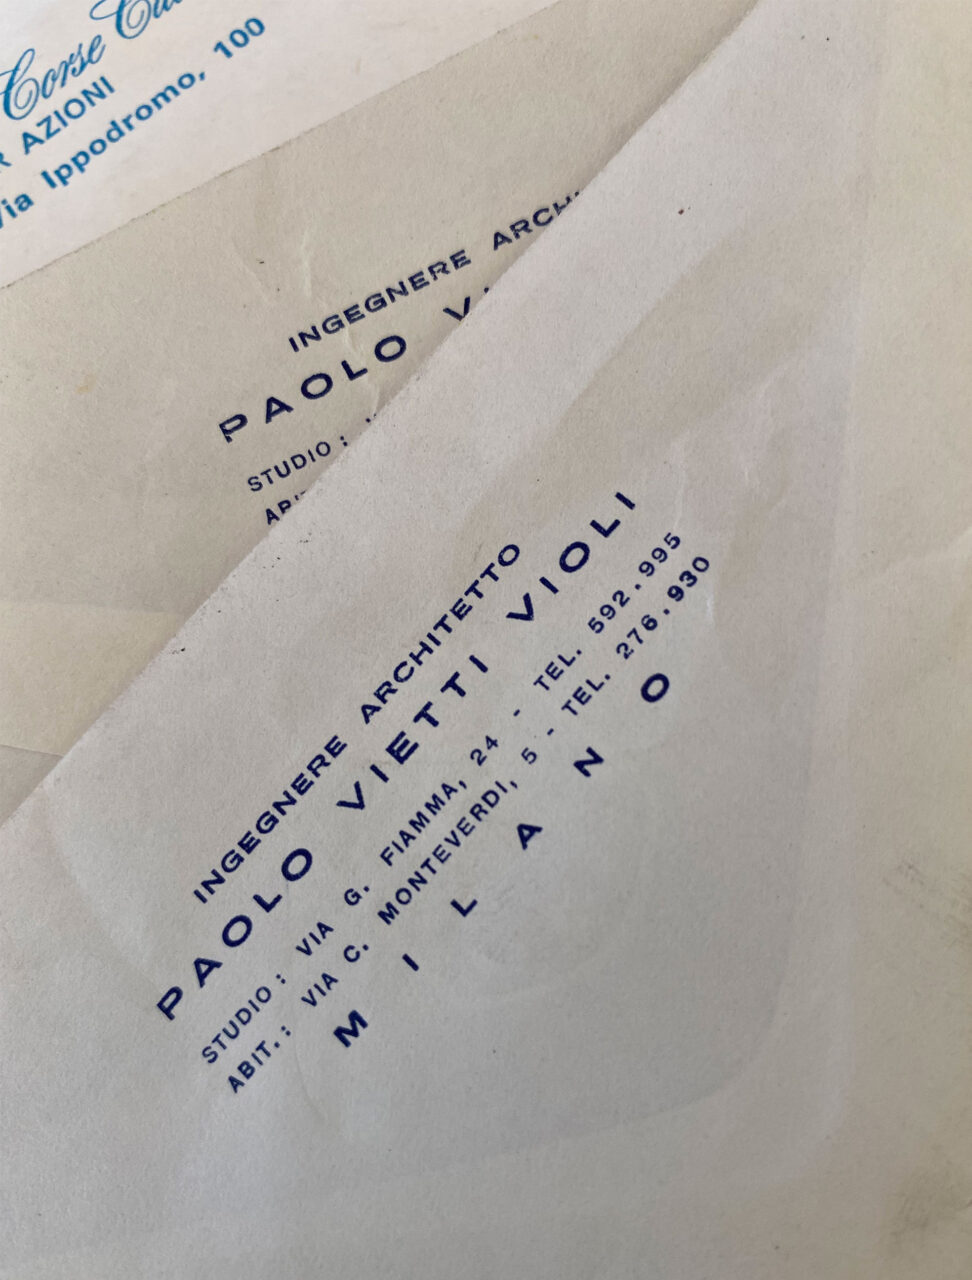 Corse
AZIONI
Via Ippodromo, 100
INGEGNERE
PAOLO
STUDIO:
INGEGNERE ARCHITETTO
PAOLO VIETTI VIOLI
STUDIO: VIA G. FIAMMA, 24 - TEL. 592.995
ABIT.: VIA C. MONTEVERDI, 5 - TEL. 276.930
MILANO